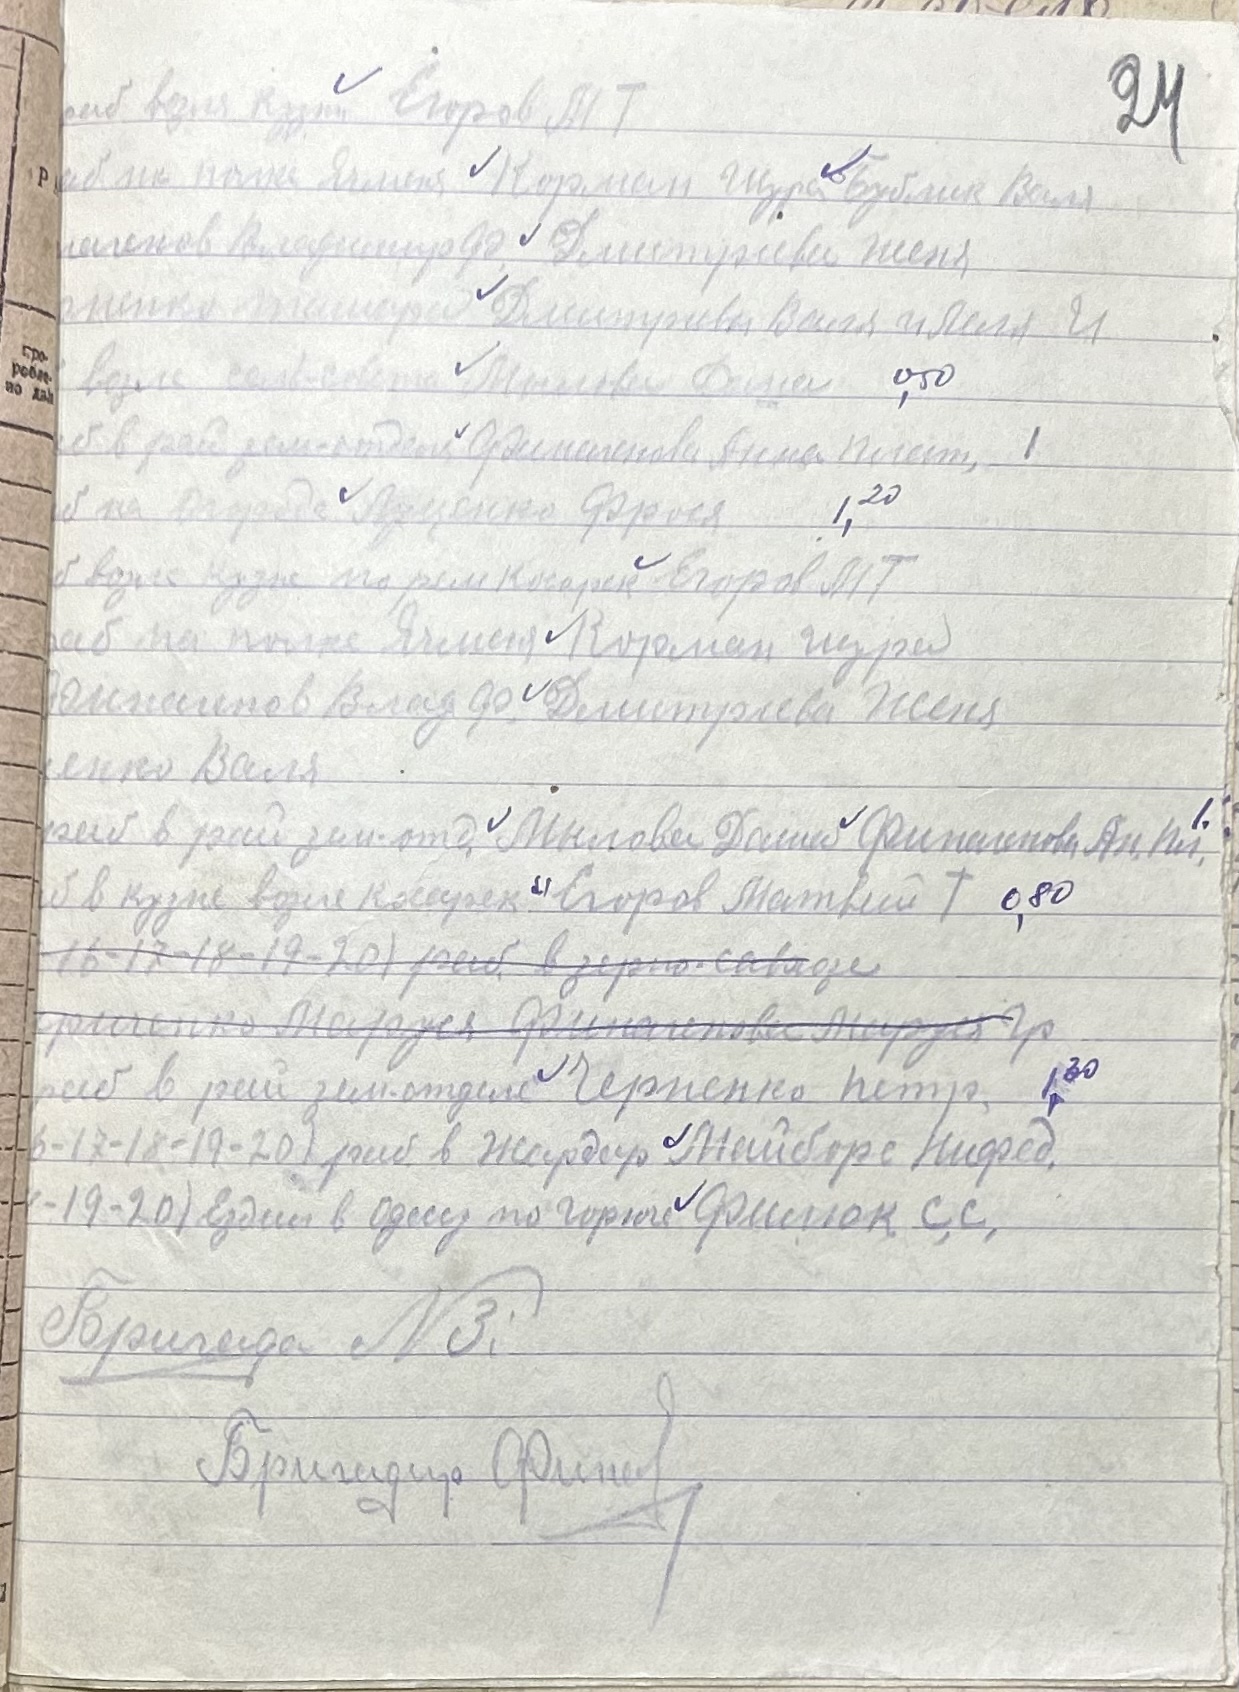 24
раб возле кузни Егоров М Т
раб на полке Ячменя Корман Шура Бублик Валя
Владимир Ф. Дмитриева Женя
Дмитриева Валя и Леля И
возле Милова Даша 0,50
раб в рай зем-отделе Финагенова Анна плат. 1
раб на огороде Яценко Фрося 1,20
раб возле кузне по рем косарек Егоров М Т
раб на полке Ячменя Корман Шура
Финагенов Влад Ф. Дмитриева Женя
енко Валя
раб в рай зем-отд. Милова Даша Финагенова Ан. Пл. 1.
раб в кузне возле косарек Егоров Матвий Т 0,80
16-17-18-19-20) раб. в зерно-савхозе
Маруся Финагенова Маруся Гр
раб в рай зем-отделе Черненко петр. 1,30
6-17-18-19-20) раб в Жардар Майборс Нифед.
-19-20) Ездил в Одесу по горюче Филюк С.С.
Бригада N 3.
Бригадир Фина
про-
робле-
но дн